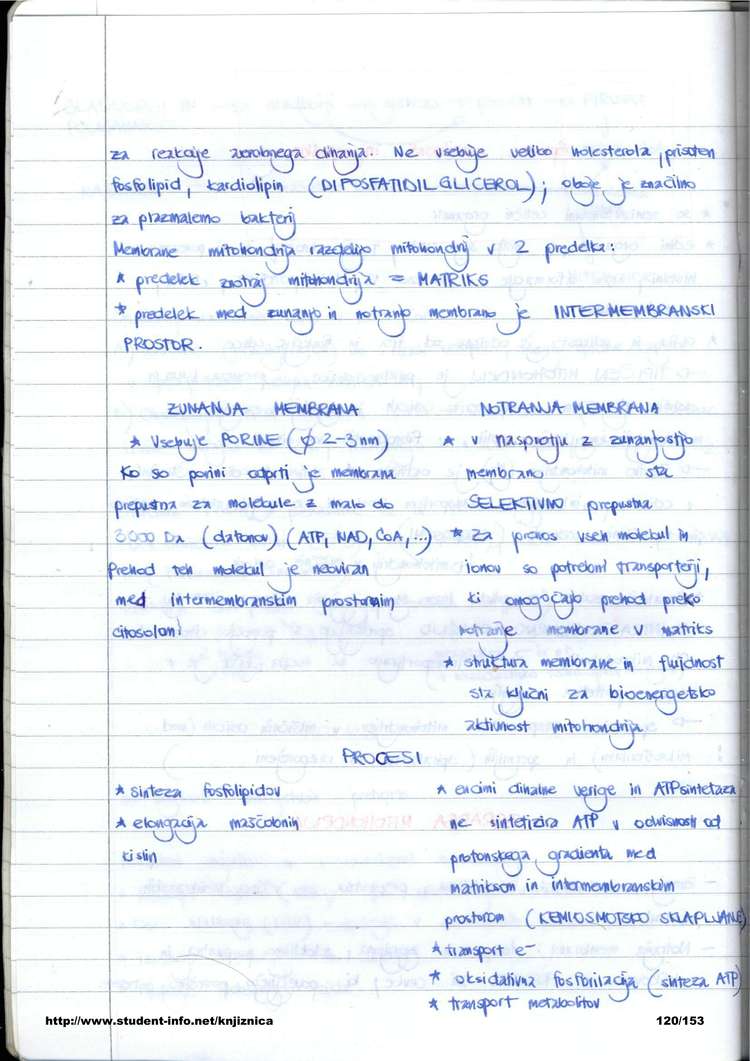 za reakcije aerobnega dihanja. Ne vsebuje veliko holesterola, prisoten
fosfolipid, kardiolipin (DIFOSFATIDIL GLICEROL); oboje je značilno
za plazmalemo bakterij
Membrane mitohondrija razdelijo mitohondrij v 2 predelka:
* predelek znotraj mitohondrija = MATRIKS
* predelek med zunanjo in notranjo membrano je INTERMEMBRANSKI
PROSTOR.
ZUNANJA MEMBRANA
* Vsebuje PORINE (ϕ 2-3 nm)
Ko so porini odprti je membrana
prepustna za molekule z malo do
3000 Da (daltonov) (ATP, NAD, CoA, ...)
Prehod teh molekul je neoviran
med intermembranskim prostorom in
citosolom!
NOTRANJA MEMBRANA
* v nasprotju z zunanjostjo
membrano sta
SELEKTIVNO prepustna
* Za prenos vseh molekul in
ionov so potrebni transporterji,
ki omogočajo prehod preko
notranje membrane v matriks
* struktura membrane in fluidnost
sta ključni za bioenergetsko
aktivnost mitohondrija
PROCESI
* sinteza fosfolipidov
* elongacija maščobnih
kislin
* encimi dihalne verige in ATPsintetaza
ne sintetizira ATP v odvisnosti od
protonskega gradienta med
matriksom in intermembranskim
prostorom (KEMIOSMOTSKO SKLAPLJANJE)
* transport e-
* oksidativna fosforilacija (sinteza ATP)
* transport metabolitov
http://www.student-info.net/knjiznica
120/153